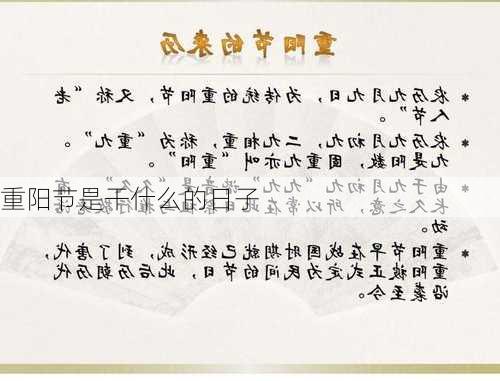 重阳节的来历
* 农历九月九日，为传统的重阳节，又称“老
人节”。
* 农历九月初九，二九相重，称为“重九”。
九是阳数，固重九亦叫“重阳”。
由于九月初九“九九”谐音是“久久”，有
长久之意，所以常在此日
重阳节是干什么的日子
动。
* 重阳节早在战国时期就已经形成，到了唐代，
重阳被正式定为民间的节日，此后历朝历代
沿袭至今。